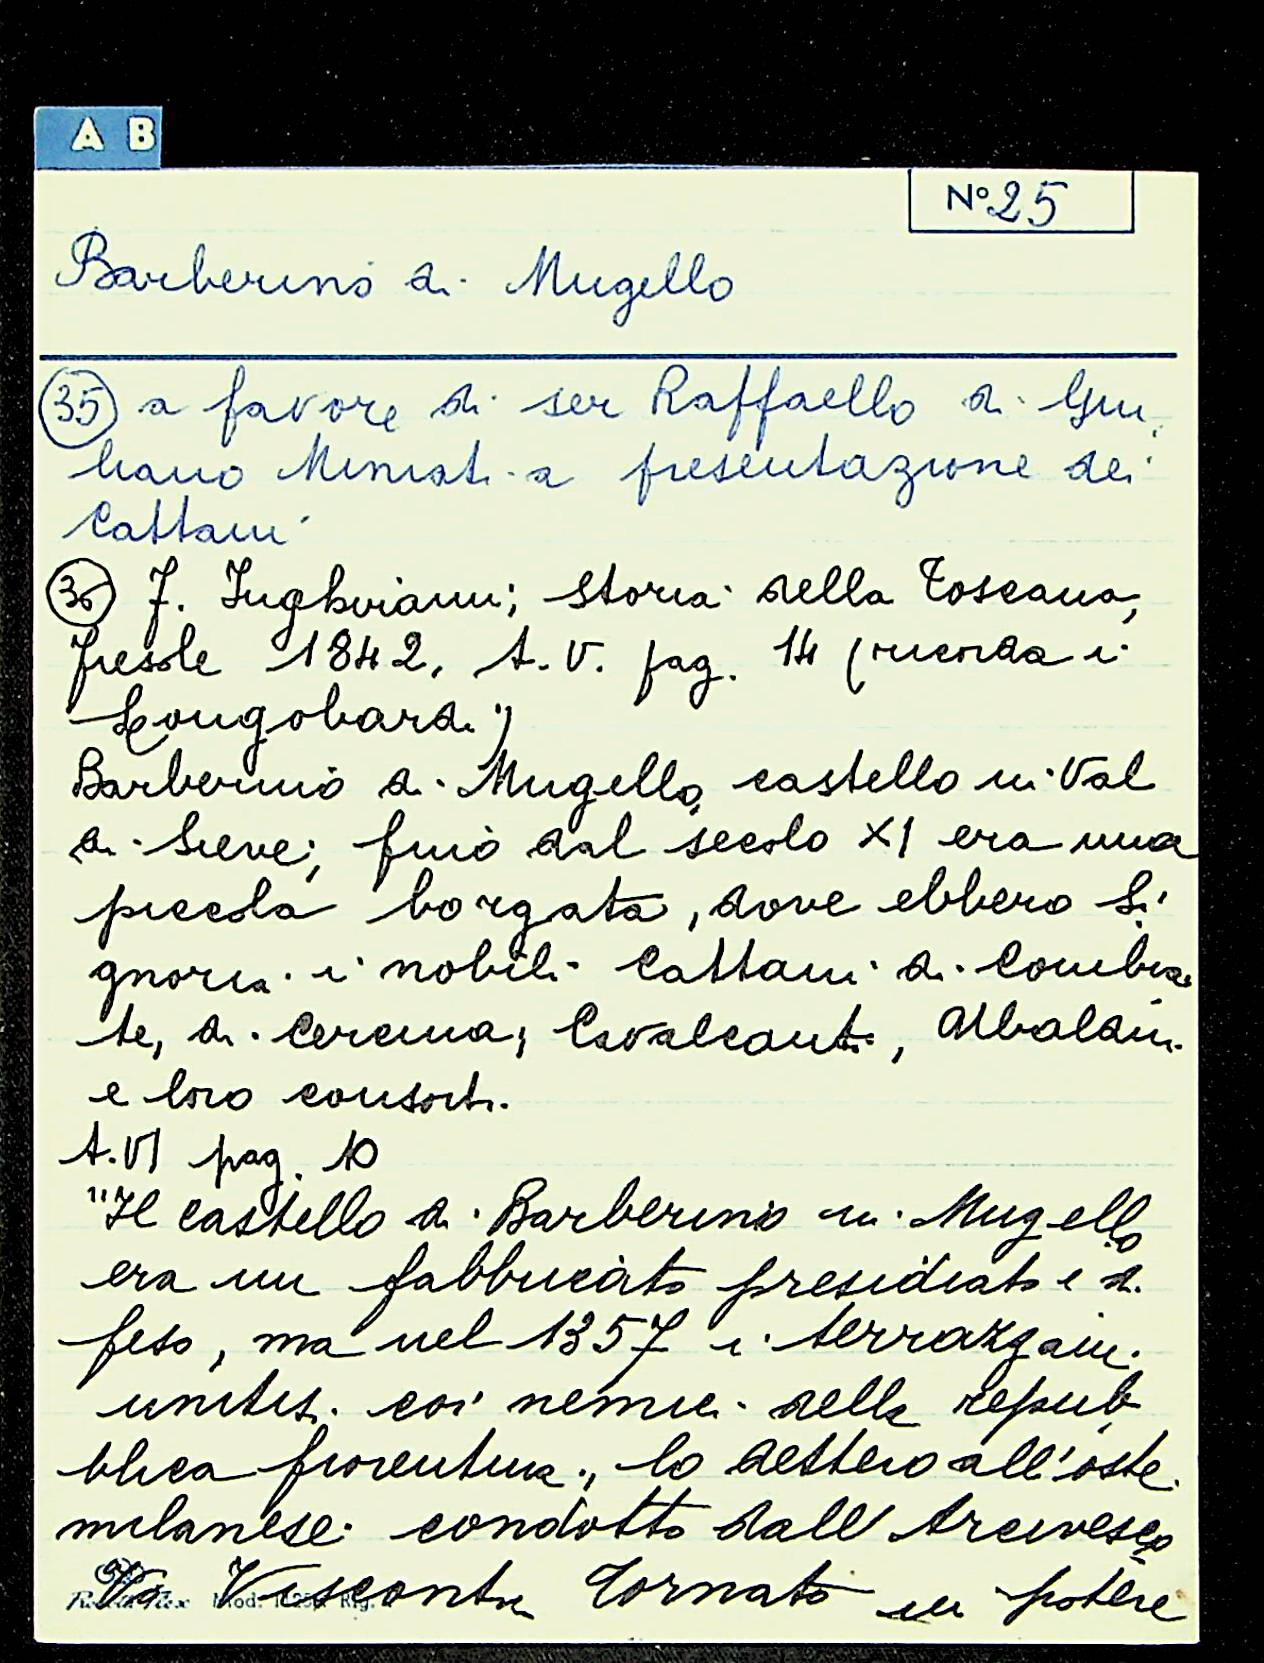 A B
N° 25
Barberino di Mugello
35 a favore di ser Raffaello di Giu
liano Miniati a presentazione dei
Cattani
36 F. Inghirami; storia della Toscana,
Fiesole 1842, t. V. pag. 14 (ricorda i
Longobardi)
Barberino di Mugello, castello in Val
di Sieve; fino dal secolo XI era una
piccola borgata, dove ebbero Si
gnoria i nobili Cattani di Combia
te, di Cercina, Cavalcanti, Ubaldini
e loro consorti.
t. VI pag. 10
"Il castello di Barberino in Mugello
era un fabbricato presidiato e di
feso, ma nel 1357 i terrazzani
unitisi coi nemici della repub
blica fiorentina, lo dettero all'oste
milanese condotto dall'Arcivesco
vo Visconti. Tornato in potere